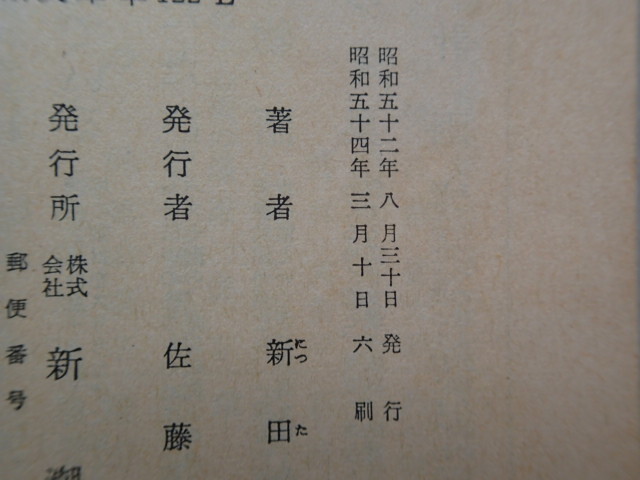 昭和五十二年八月三十日発行
昭和五十四年三月十日六刷
著者 新田
にった
発行者 佐藤
発行所 株式会社 新
郵便番号